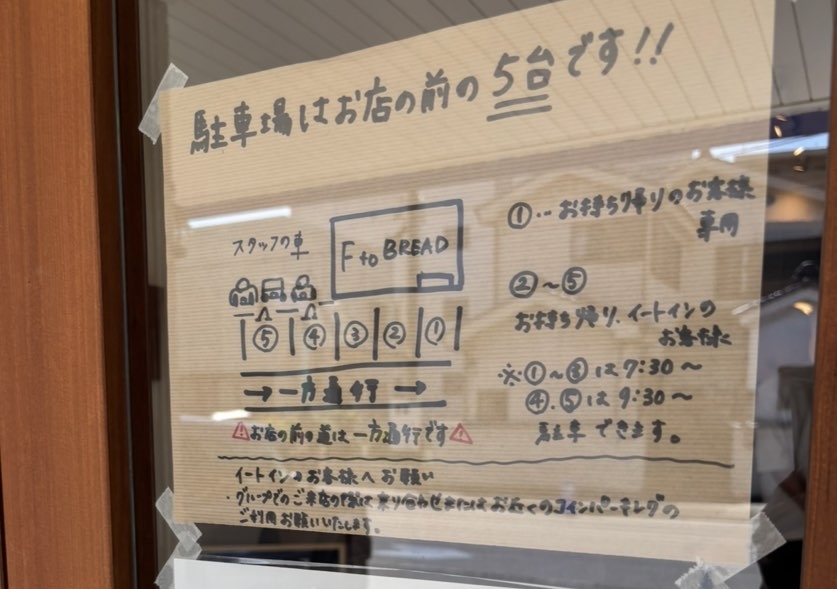 駐車場はお店の前の5台です!!
スタッフの車
F to BREAD
⑤ ④ ③ ② ①
→一方通行→
⚠お店の前の道は一方通行です⚠
①‥お持ち帰りのお客様
専用
②〜⑤
お持ち帰り、イートインの
お客様
※①〜③は7:30〜
④、⑤は9:30〜
駐車できます。
イートインのお客様へお願い
・グループでのご来店の際は乗り合わせまたはお近くのコインパーキングの
ご利用お願いいたします。